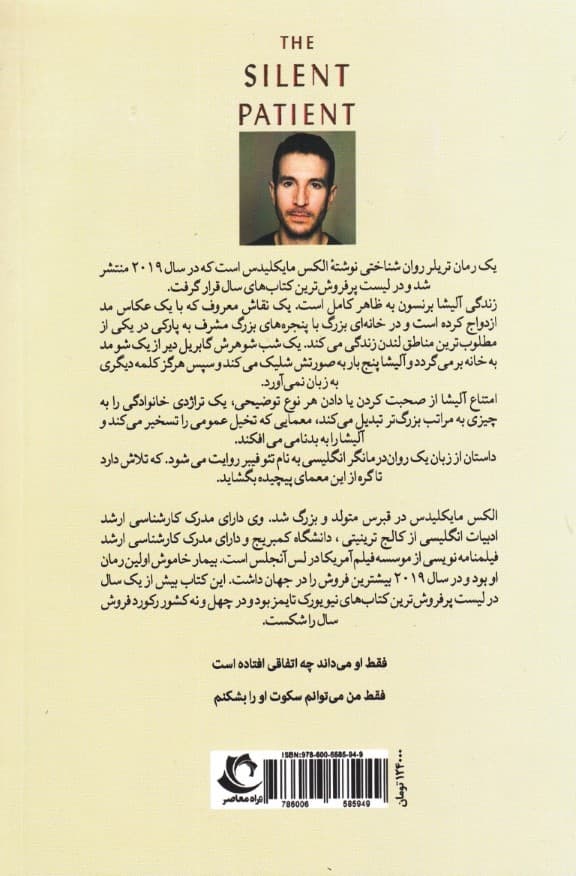 THE
SILENT
PATIENT
یک رمان تریلر روان شناختی نوشتهٔ الکس مایکلیدس است که در سال ۲۰۱۹ منتشر
شد و در لیست پرفروش‌ترین کتاب‌های سال قرار گرفت.
زندگی آلیشا برنسون به ظاهر کامل است. یک نقاش معروف که با یک عکاس مد
ازدواج کرده است و در خانه‌ای بزرگ با پنجره‌های بزرگ مشرف به پارکی در یکی از
مطلوب‌ترین مناطق لندن زندگی می‌کند. یک شب شوهرش گابریل دیر از یک شو مد
به خانه بر می‌گردد و آلیشا پنج بار به صورتش شلیک می‌کند و سپس هرگز کلمه دیگری
به زبان نمی‌آورد.
امتناع آلیشا از صحبت کردن یا دادن هر نوع توضیحی، یک تراژدی خانوادگی را به
چیزی به مراتب بزرگ‌تر تبدیل می‌کند، معمایی که تخیل عمومی را تسخیر می‌کند و
آلیشا را به بدنامی می افکند.
داستان از زبان یک روان‌درمانگر انگلیسی به نام تئو فیبر روایت می شود. که تلاش دارد
تا گره از این معمای پیچیده بگشاید.
الکس مایکلیدس در قبرس متولد و بزرگ شد. وی دارای مدرک کارشناسی ارشد
ادبیات انگلیسی از کالج ترینیتی ، دانشگاه کمبریج و دارای مدرک کارشناسی ارشد
فیلمنامه نویسی از موسسه فیلم آمریکا در لس آنجلس است. بیمار خاموش اولین رمان
او بود و در سال ۲۰۱۹ بیشترین فروش را در جهان داشت. این کتاب بیش از یک سال
در لیست پرفروش‌ترین کتاب‌های نیویورک تایمز بود و در چهل و نه کشور رکورد فروش
سال را شکست.
فقط او می‌داند چه اتفاقی افتاده است
فقط من می‌توانم سکوت او را بشکنم
ISBN:978-600-6585-94-9
786006 585949
راه معاصر
۱۲۴۰۰۰ تومان